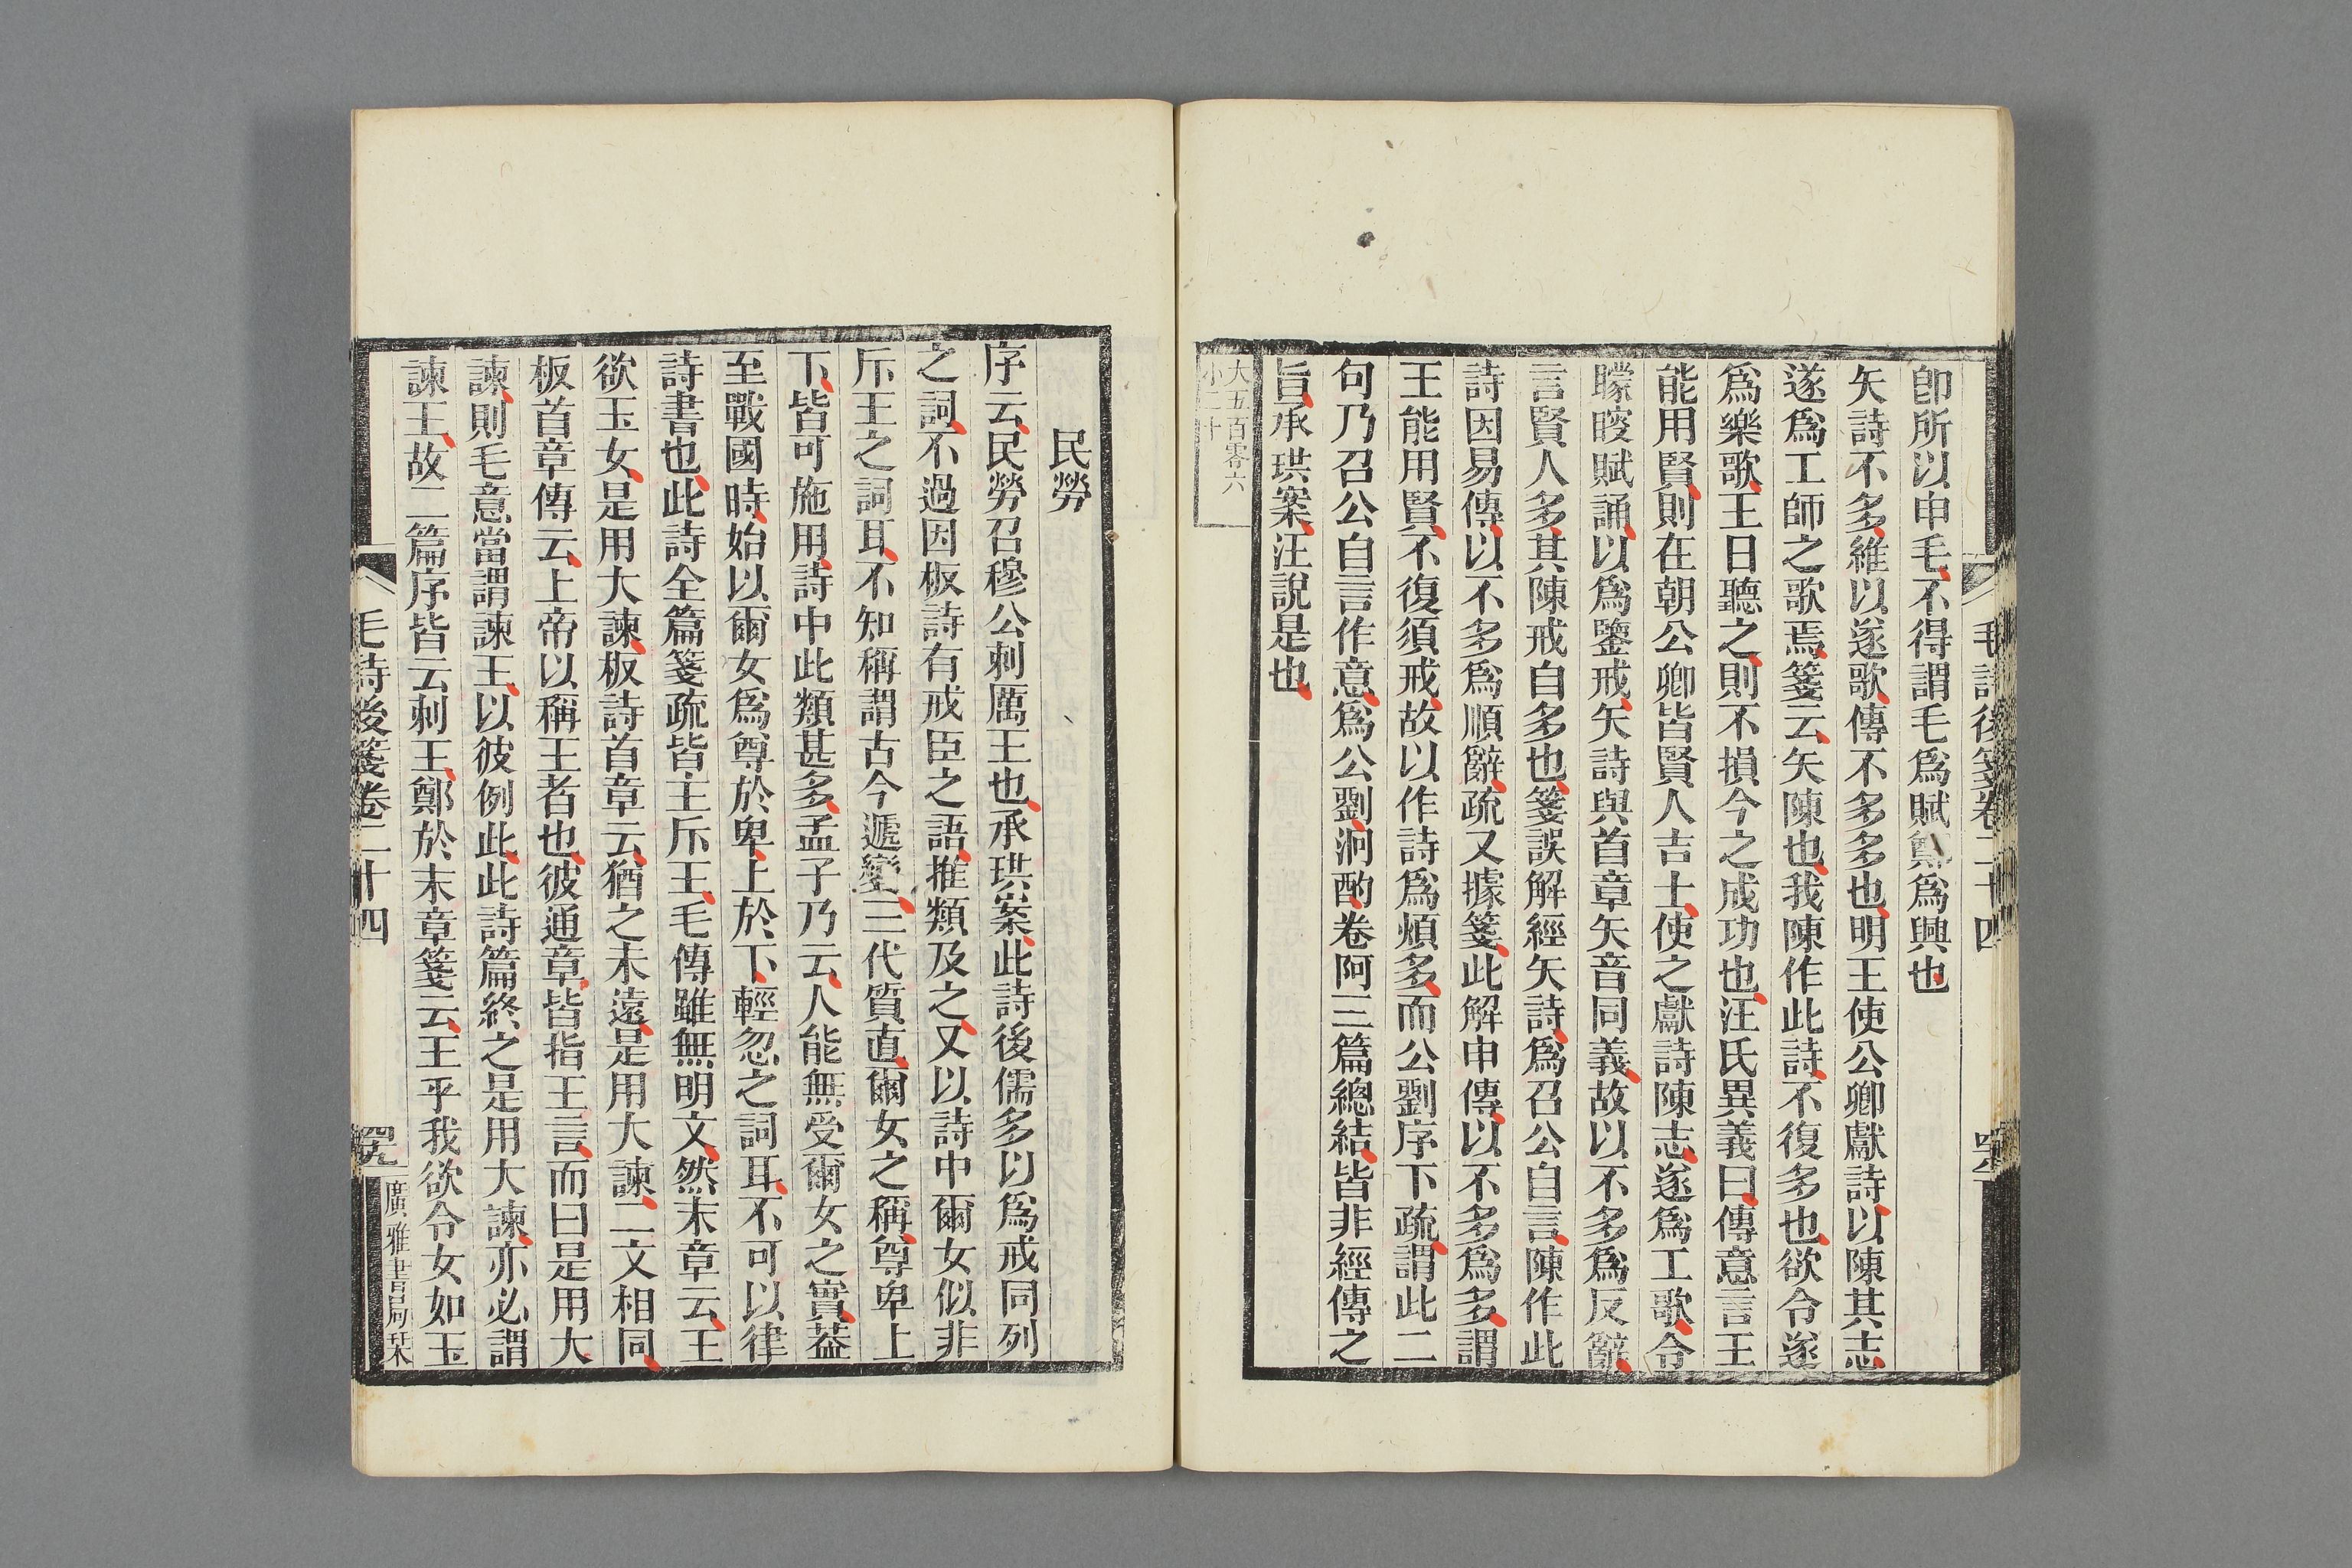 毛詩後箋卷二十四
卽所以申毛不得謂毛爲賦鄭爲興也
矢詩不多維以遂歌傳不多多也明王使公卿獻詩以陳其志
遂爲工師之歌焉箋云矢陳也我陳作此詩不復多也欲令遂
爲樂歌王日聽之則不損今之成功也汪氏異義曰傳意言王
能用賢則在朝公卿皆賢人吉士使之獻詩陳志遂爲工歌令
矇瞍賦誦以爲鑒戒矢詩與首章矢音同義故以不多爲反辭
言賢人多其陳戒自多也箋誤解經矢詩爲召公自言陳作此
詩因易傳以不多爲順辭疏又據箋此解申傳以不多爲多謂
王能用賢不復須戒故以作詩爲煩多而公劉序下疏謂此二
句乃召公自言作意爲公劉泂酌卷阿三篇總結皆非經傳之
旨承珙案汪說是也
大五百零六
小二十
民勞
序云民勞召穆公刺厲王也承珙案此詩後儒多以爲戒同列
之詞不過因板詩有戒臣之語推類及之又以詩中爾女似非
斥王之詞耳不知稱謂古今遞變三代質直爾女之稱尊卑上
下皆可施用詩中此類甚多孟子乃云人能無受爾女之實葢
至戰國時始以爾女爲尊於卑上於下輕忽之詞耳不可以律
詩書也此詩全篇箋疏皆主斥王毛傳雖無明文然末章云王
欲玉女是用大諫板詩首章云猶之未遠是用大諫二文相同
板首章傳云上帝以稱王者也彼通章皆指王言而曰是用大
諫則毛意當謂諫王以彼例此此詩篇終之是用大諫亦必謂
諫王故二篇序皆云刺王鄭於末章箋云王乎我欲令女如玉
毛詩後箋卷二十四
四九
廣雅書局栞